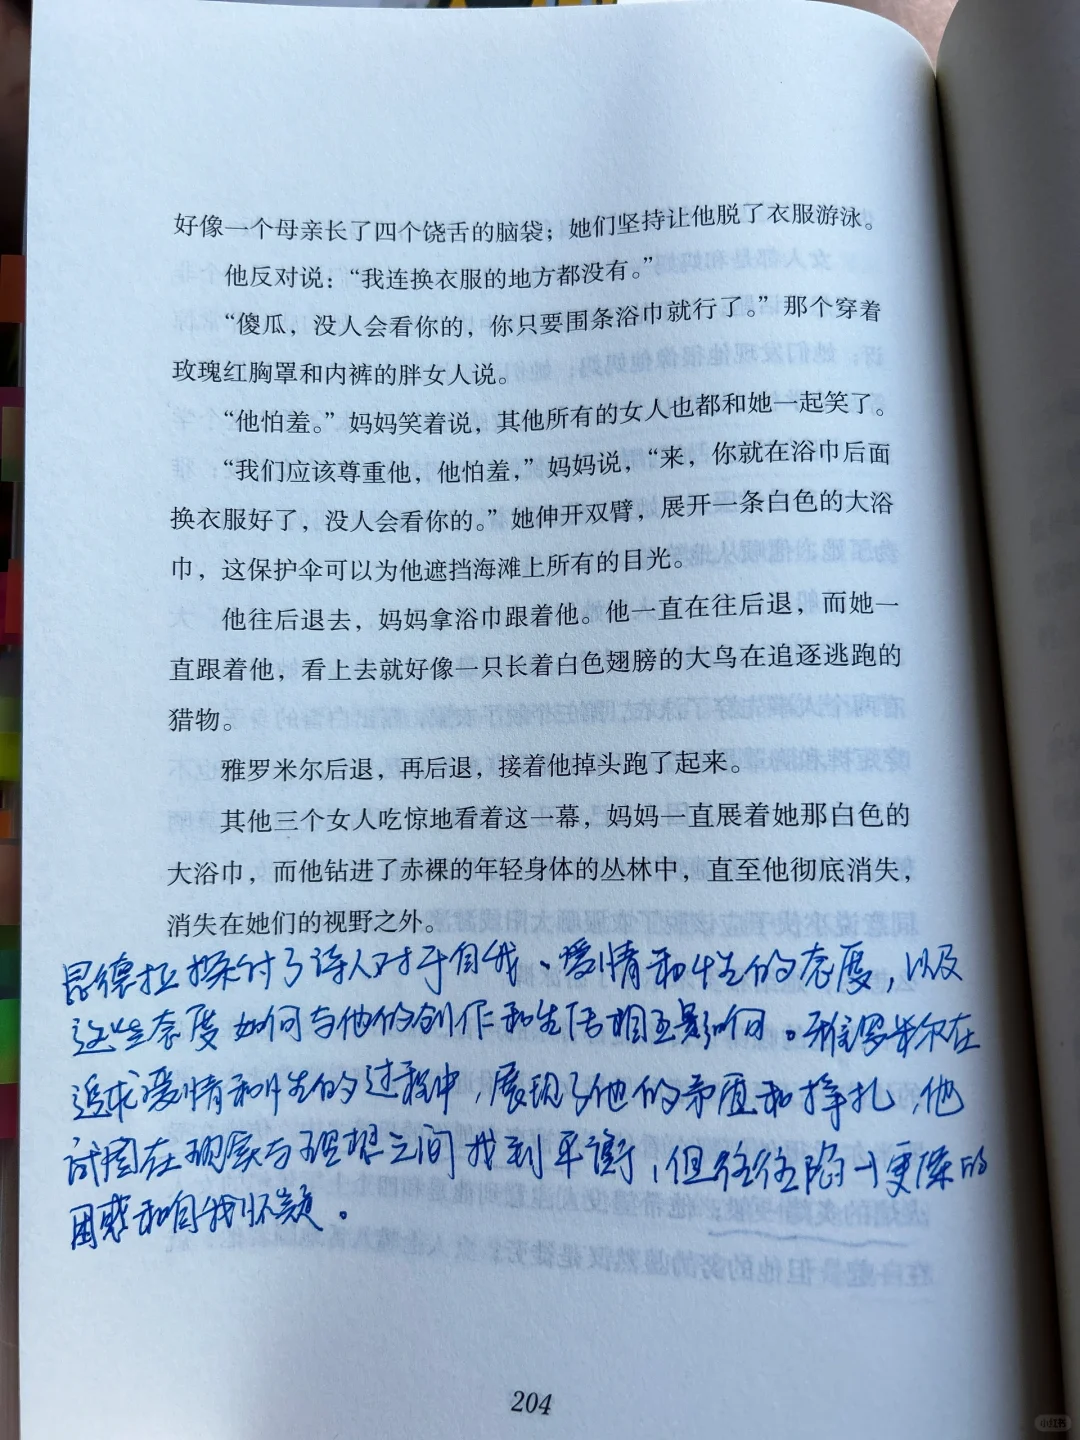 好像一个母亲长了四个饶舌的脑袋；她们坚持让他脱了衣服游泳。
他反对说：“我连换衣服的地方都没有。”
“傻瓜，没人会看你的，你只要围条浴巾就行了。”那个穿着
玫瑰红胸罩和内裤的胖女人说。
“他怕羞。”妈妈笑着说，其他所有的女人也都和她一起笑了。
“我们应该尊重他，他怕羞，”妈妈说，“来，你就在浴巾后面
换衣服好了，没人会看你的。”她伸开双臂，展开一条白色的大浴
巾，这保护伞可以为他遮挡海滩上所有的目光。
他往后退去，妈妈拿浴巾跟着他。他一直在往后退，而她一
直跟着他，看上去就好像一只长着白色翅膀的大鸟在追逐逃跑的
猎物。
雅罗米尔后退，再后退，接着他掉头跑了起来。
其他三个女人吃惊地看着这一幕，妈妈一直展着她那白色的
大浴巾，而他钻进了赤裸的年轻身体的丛林中，直至他彻底消失，
消失在她们的视野之外。
昆德拉探讨了诗人对于自我、爱情和性的态度，以及
这些态度如何与他的创作和生活相互影响。雅罗米尔在
追求爱情和性的过程中，展现了他的矛盾和挣扎，他
试图在现实与理想之间找到平衡，但往往陷于更深的
困惑和自我怀疑。
204
小红书